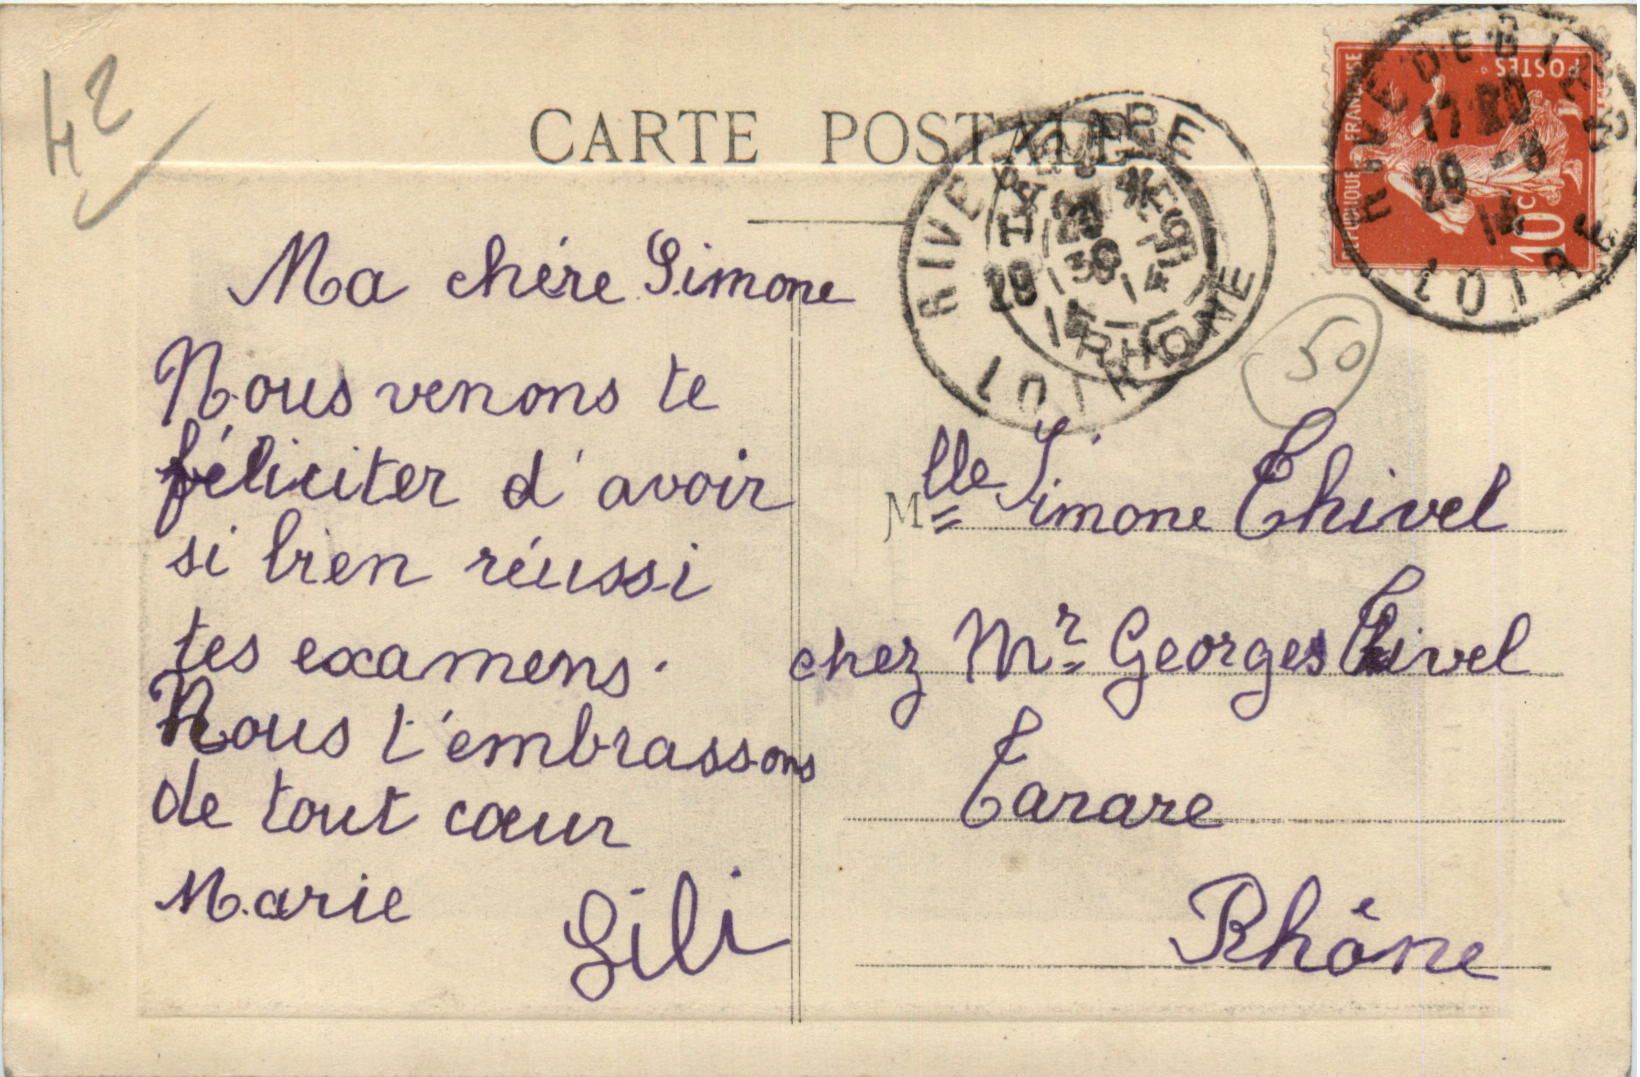 42
CARTE POSTALE
RIVE DE GIER
17 30
29 -8
14
LOIRE
POSTES
REPUBLIQUE FRANÇAISE
10c
TARARE
RHONE
RIVE
LOIRE
50
Ma chére Simone
Nous venons te
féliciter d'avoir
si bien réussi
tes examens.
Nous t'embrassons
de tout cœur
Marie Lili
Mlle Simone Chivel
chez Mr Georges Chivel
Tarare
Rhône